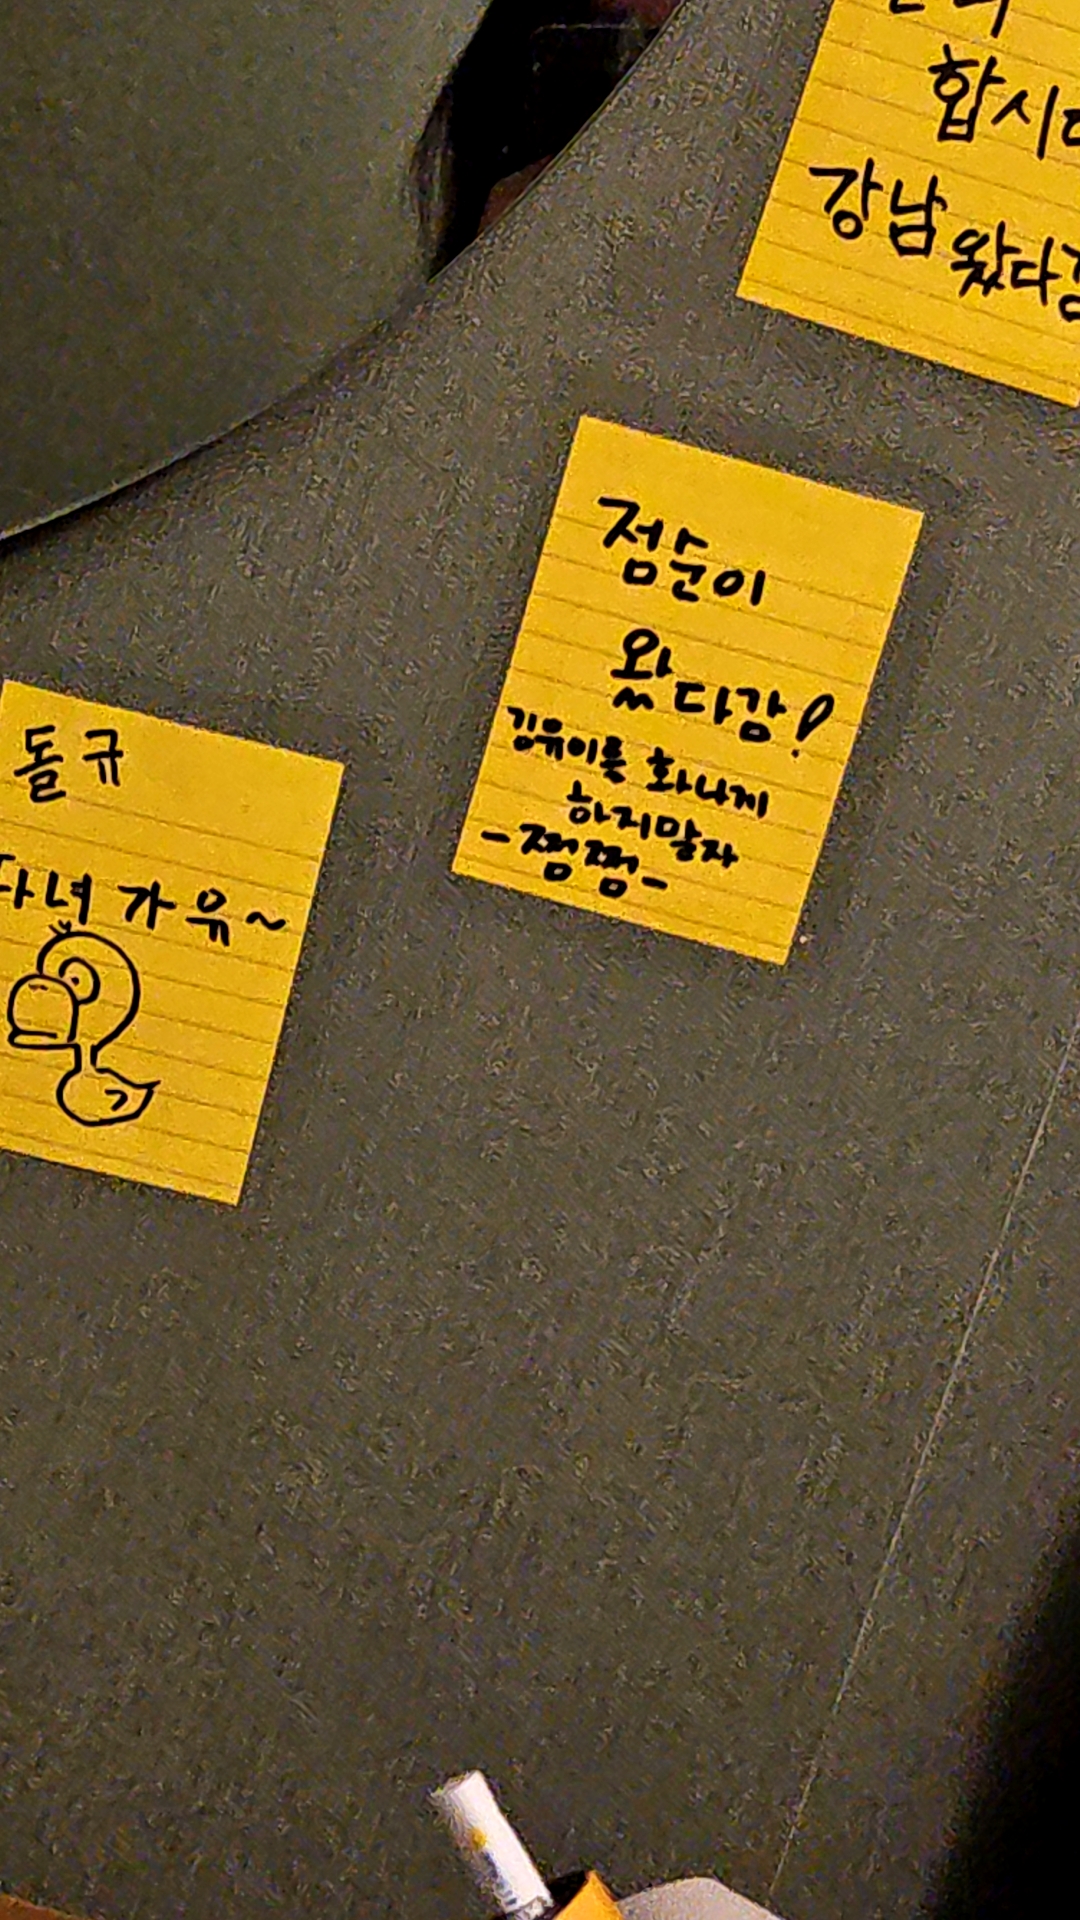 합시다
강남 왔다감
점순이
왔다감!
김유이를 화나게
하지말자
-쩜쩜-
돌규
다녀가유~